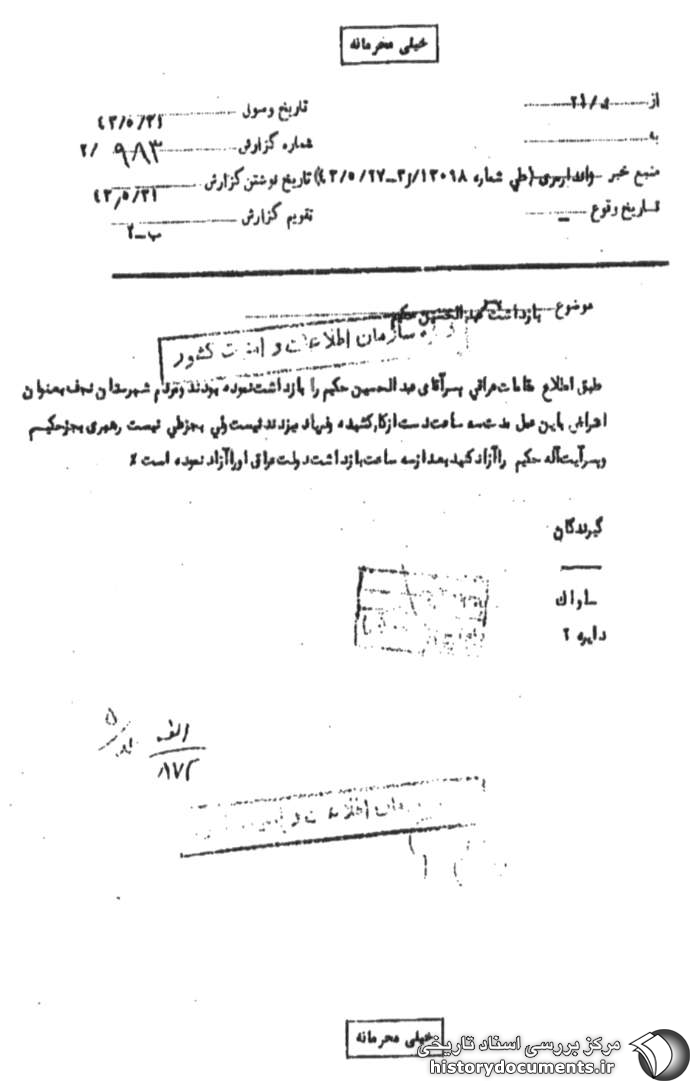 خیلی محرمانه
از
تاریخ وصول ۴۳/۵/۳۱
به
شماره گزارش ۲/ ۹۸۳
منبع خبر (طی شماره ۱۳۰۹۸/ ۳ـ ۴۳/۵/۲۷) تاریخ نوشتن گزارش ۴۳/۵/۳۱
تاریخ وقوع ـ
تقویم گزارش ب ـ ۲
موضوع بازداشت عبدالحسین حکیم
سازمان اطلاعات و امنیت کشور
طبق اطلاع مقامات عراقی پسر آقای عبدالحسین حکیم را بازداشت نموده بودند و مردم شهرستان نجف بعنوان
اعتراض باین عمل مدت سه ساعت دست از کار کشیده و فریاد میزدند نیست ولی بجز علی نیست رهبری بجز حکیم
و پسر آیت اله حکیم را آزاد کنید بعد از سه ساعت بازداشت دولت عراق او را آزاد نموده است ٪
گیرندگان
ساواک
دایره ۲
الف
۸۷۲
اطلاعات و
خیلی محرمانه
مرکز بررسی اسناد تاریخی
historydocuments.ir